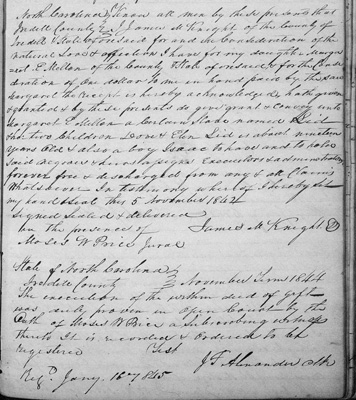 North Carolina } Know all men by these presents that
Iredell County } I James McKnight of the County of
Iredell & State aforesaid for and in the Consideration of the
natural love & affection I have for my daughter Marga
ret E McMellon of the County & State aforesaid & for the Consi
deration of one Dollar to me in hand paid by the said
Margaret the receipt is hereby acknowledged hath given
& granted & by these presents do give grant & Convey unto
Margaret E McMellon a Certain Slave named
her two Children & Elen is about nineteen
years old & also a boy Isaac to have and to hold
said negroes & heirs assigns Executors & administrators
forever free & discharged from any & all Claims
Whatsoever In testimony whereof I hereby set
my hand & seal this 5 November 1842
Signed Sealed & delivered
in the presence of James McKnight
Moses W Price Jurat
State of North Carolina }
Iredell County } November Term 1844
The execution of the within deed of gift
was duly proven in Open Court by the
Oath of Moses W Price a Subscribing witness
thereto It is recorded & Ordered to be
registered Test
J F Alexander clk
Reg'd Jany. 16th 1845